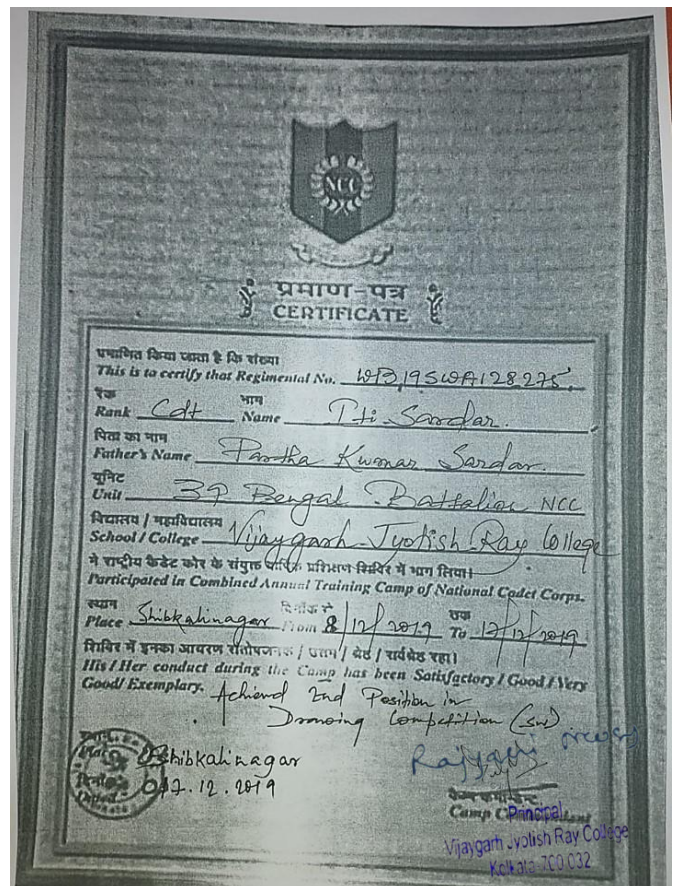 NCC
प्रमाण-पत्र
CERTIFICATE
प्रमाणित किया जाता है कि संख्या
This is to certify that Regimental No. WB19SWA128275
रैंक नाम
Rank Cdt Name Iti Sardar.
पिता का नाम
Father's Name Partha Kumar Sardar.
यूनिट
Unit 37 Bengal Battalion NCC
विद्यालय / महाविद्यालय
School / College Vijaygarh Jyotish Ray College
ने राष्ट्रीय कैडेट कोर के संयुक्त वार्षिक प्रशिक्षण शिविर में भाग लिया।
Participated in Combined Annual Training Camp of National Cadet Corps.
स्थान दिनाँक से तक
Place Shibkalinagar From 8/12/2019 To 17/12/2019
शिविर में इनका आचरण संतोषजनक / उत्तम / श्रेष्ठ / सर्वश्रेष्ठ रहा।
His / Her conduct during the Camp has been Satisfactory / Good / Very
Good/ Exemplary. Achieved 2nd Position in
Drawing Competition (SW)
Shibkalinagar
17.12.2019
Principal
Vijaygarh Jyotish Ray College
Kolkata-700 032